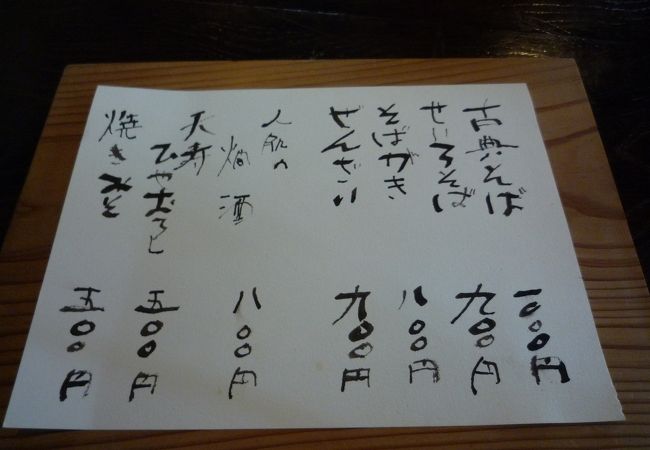 古典そば 一〇〇〇円
せいろそば 九〇〇円
そばがき 八〇〇円
ぜんざい 九〇〇円
人肌の
燗酒 八〇〇円
天寿
ひやおろし 五〇〇円
焼きみそ 五〇〇円